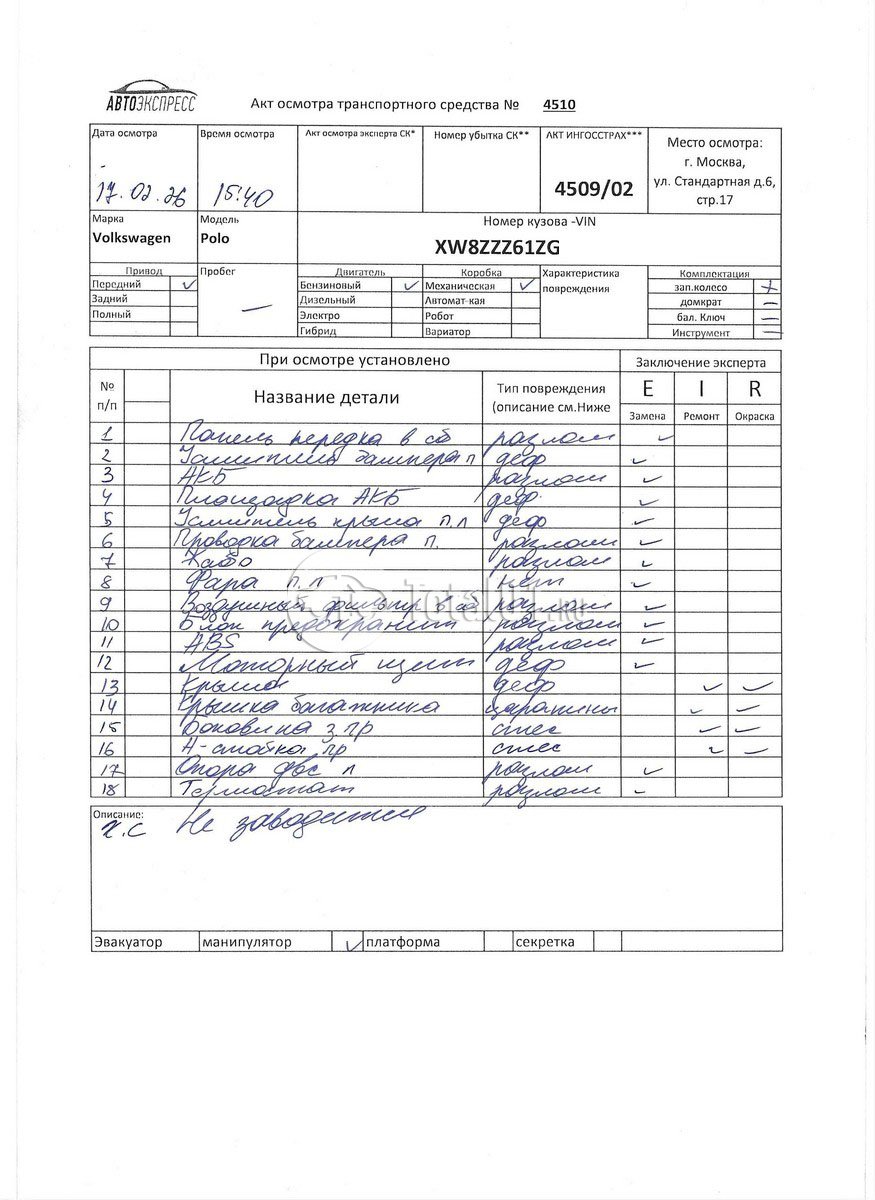 АВТОЭКСПРЕСС
Акт осмотра транспортного средства № 4510
Дата осмотра Время осмотра Акт осмотра эксперта СК* Номер убытка СК** АКТ ИНГОССТРАХ*** Место осмотра:
г. Москва,
ул. Стандартная д.6,
стр.17
17.02.26 15:40 4509/02
Марка Модель Номер кузова -VIN
Volkswagen Polo XW8ZZZ61ZG
Привод Пробег Двигатель Коробка Характеристика повреждения Комплектация
Передний ✓ — Бензиновый ✓ Механическая ✓ зап.колесо +
Задний Дизельный Автомат-кая домкрат —
Полный Электро Робот бал. Ключ —
Гибрид Вариатор Инструмент —
При осмотре установлено Заключение эксперта
№ п/п Название детали Тип повреждения (описание см.Ниже E I R
Замена Ремонт Окраска
1 Панель передка в сб разлом ✓
2 Усилитель бампера п деф ✓
3 АКБ разлом ✓
4 Площадка АКБ деф. ✓
5 Усилитель крыла п.л деф ✓
6 Проводка бампера п. разлом ✓
7 разлом ✓
8 Фара п.л нет ✓
9 Воздушный фильтр в сб разлом ✓
10 Блок предохранит разлом ✓
11 ABS разлом ✓
12 Моторный щит деф ✓
13 Крыша деф ✓ ✓
14 Крышка багажника царапины ✓ ✓
15 Боковина з.пр стес ✓ ✓
16 А-стойка пр стес ✓ ✓
17 Опора двс л разлом ✓
18 Термостат разлом ✓
Описание:
х.с Не заводится
Эвакуатор манипулятор ✓ платформа секретка